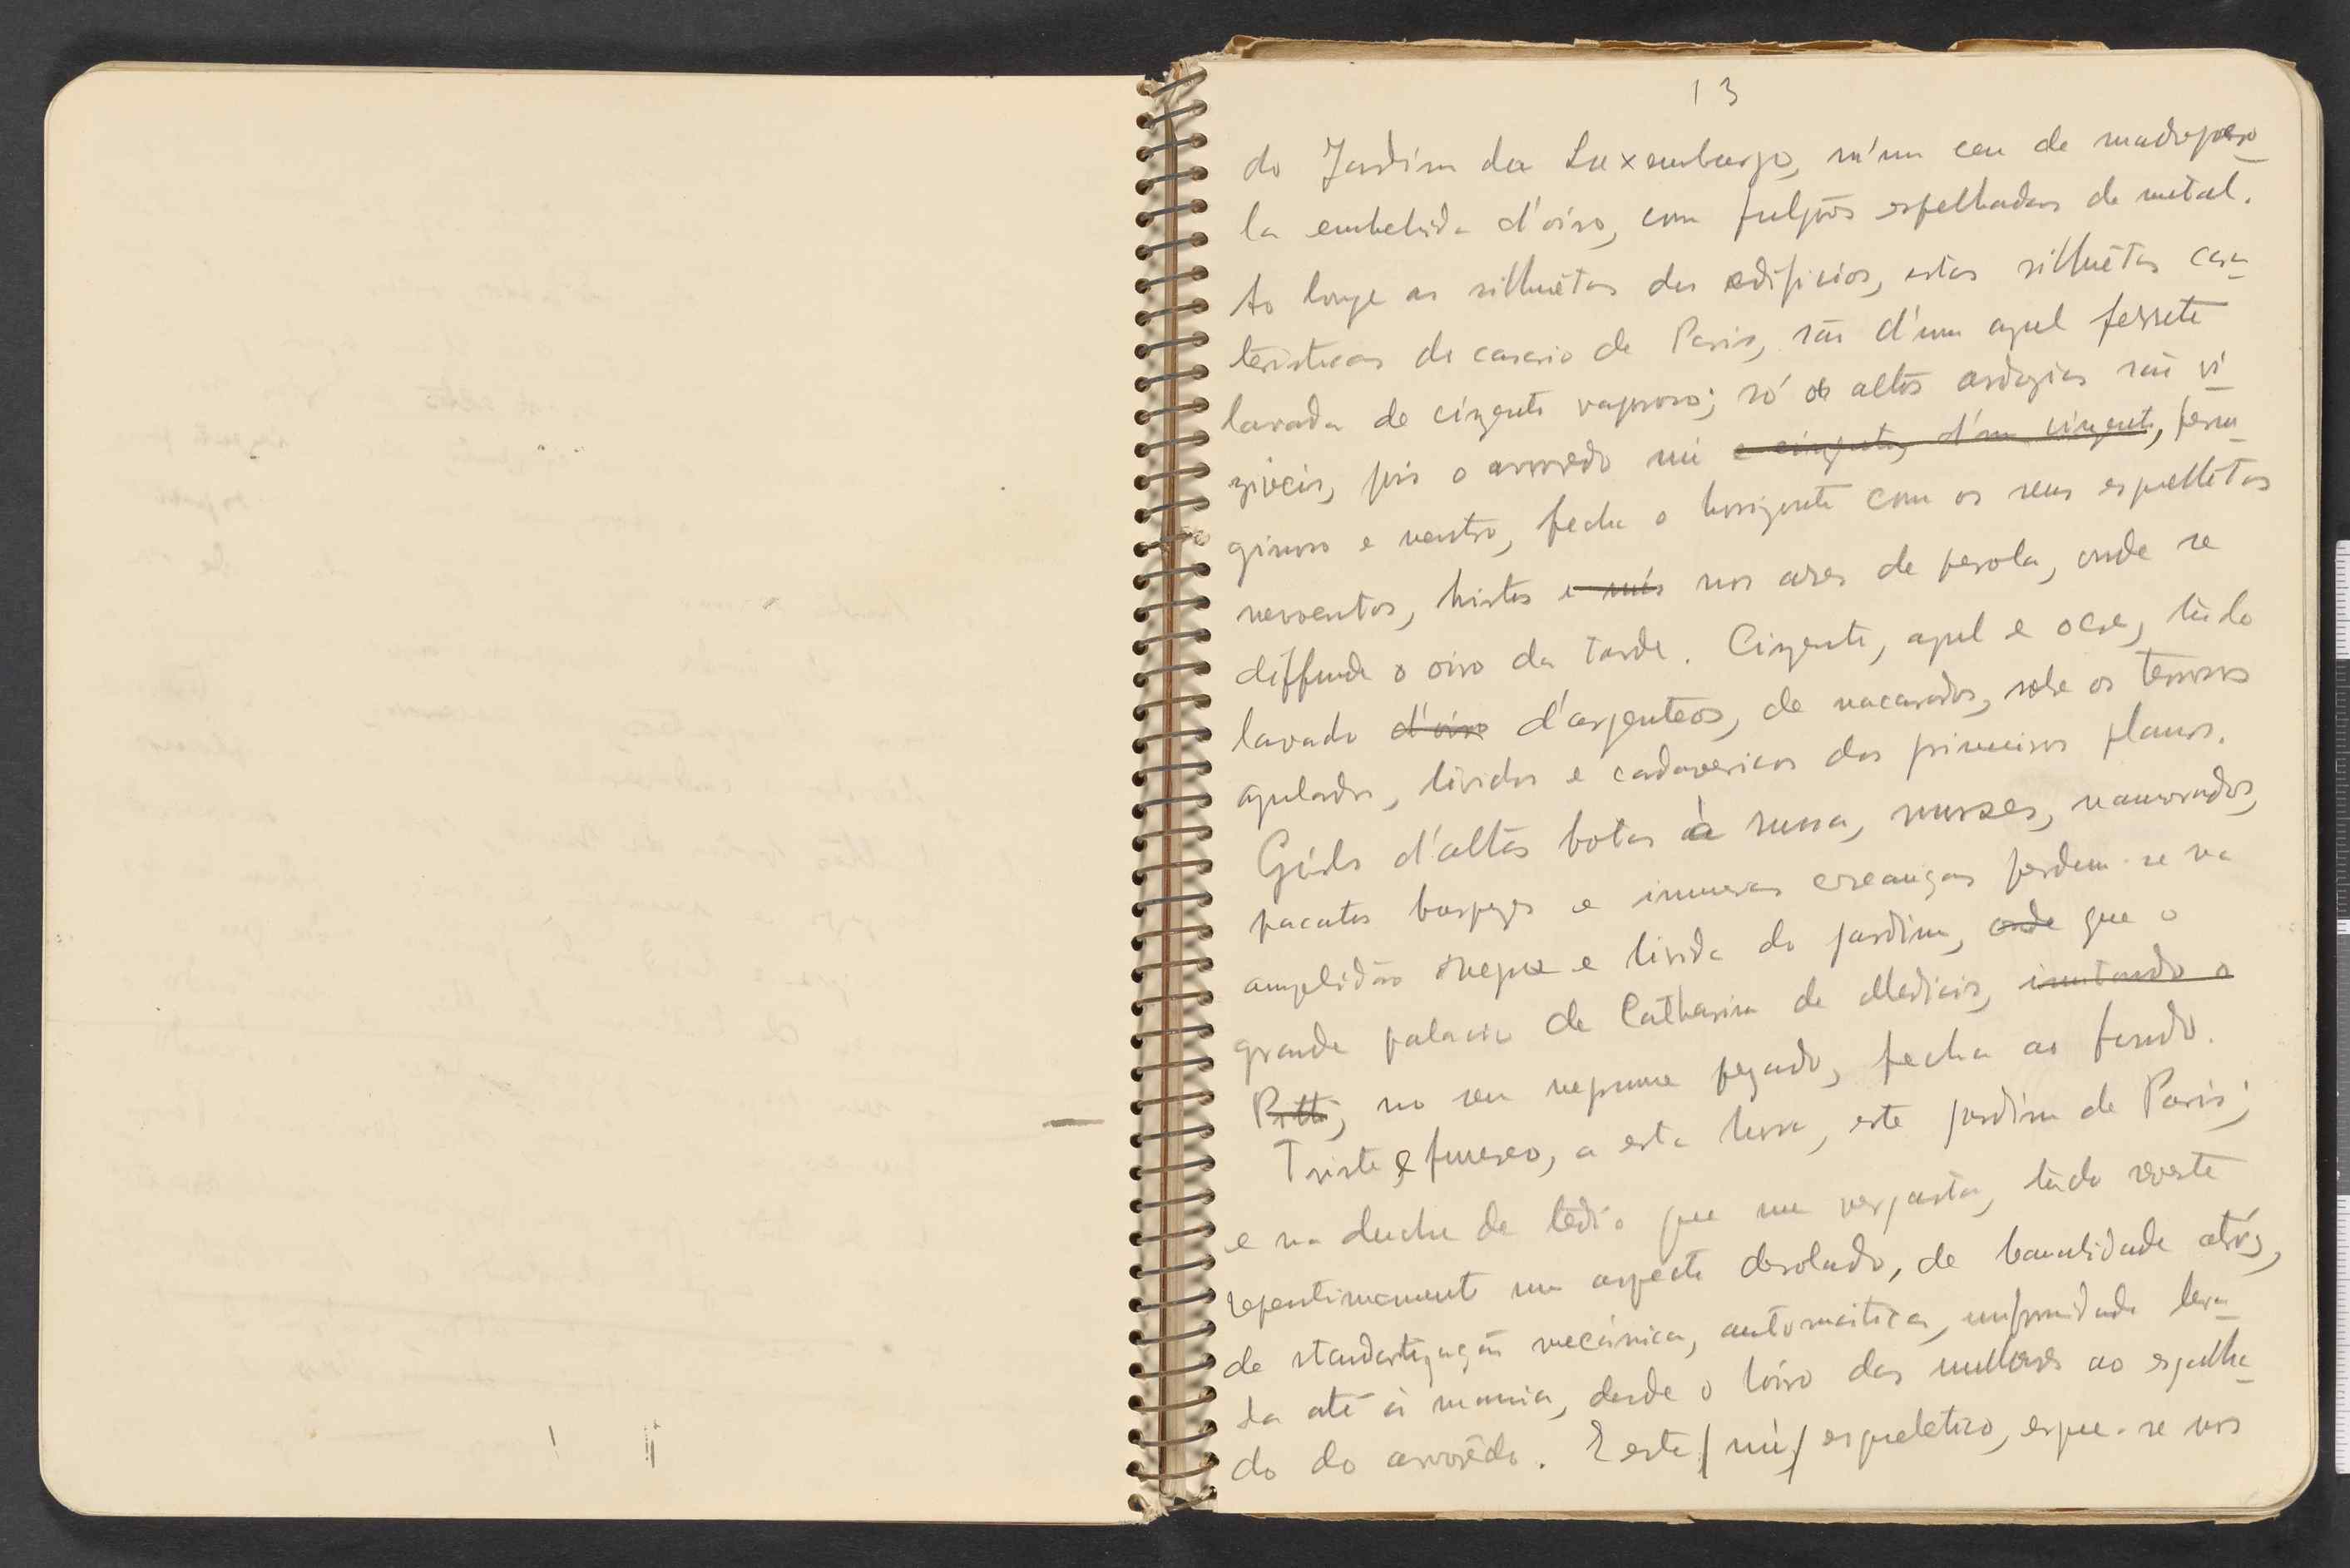 13
do Jardim do Luxemburgo, n'um ceu de madrepero-
la embebida d'oiro, com fulgôs espelhados de metal.
Ao longe as silhuêtas dos edificios, estas silhuêtas cara-
teristicas do casario de Paris, são d'um azul ferrete
lavado de cinzento vaporoso; só as altas ardozias são vi-
ziveis, pois o arvoredo nú e cinzento, d'um cinzento, ferru-
ginoso e neutro, fecha o horizonte com os seus esquelletos
nevoentos, tristes e nús nos ares de perola, onde se
diffunde o oiro da tarde. Cinzento, azul e ocre, tudo
lavado d'oiro d'argenteos, de nacarados, sobre os terrosos
azulados, lividos e cadavericos dos primeiros planos.
Girls d'altas botas à russa, nurses, namorados,
pacatos burguezes e inumeras creanças perdem-se na
amplidão e livida do jardim, onde que o
grande palacio de Catharina de Medicis, imitando o
Pitti, no seu negrume pezado, fecha ao fundo.
Triste e funereo, a esta hora, este jardim de Paris;
e na duche de tedio que me vergasta, tudo reveste
repentinamente um aspecto desolado, de banalidade atróz,
de standartização mecánica, automatica, uniformidade leva-
da até á mania, desde o loiro das mulheres ao espelha-
do do arvorêdo. E este / nú, / esqueletico, ergue-se nos